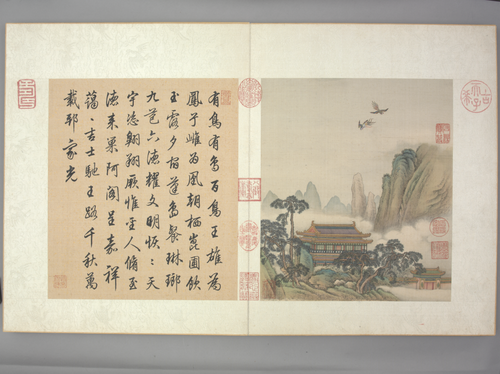 有鳥有鳥百鳥王雄為
鳳兮雌為凰朝栖崑圃飲
玉露夕宿蓬島餐琳瑯
九苞六德耀文明恢〻天
宇恣翱翔厥惟至人脩至
德來巢阿閣呈嘉祥
藹〻吉士馳王路千秋萬
載邦家光